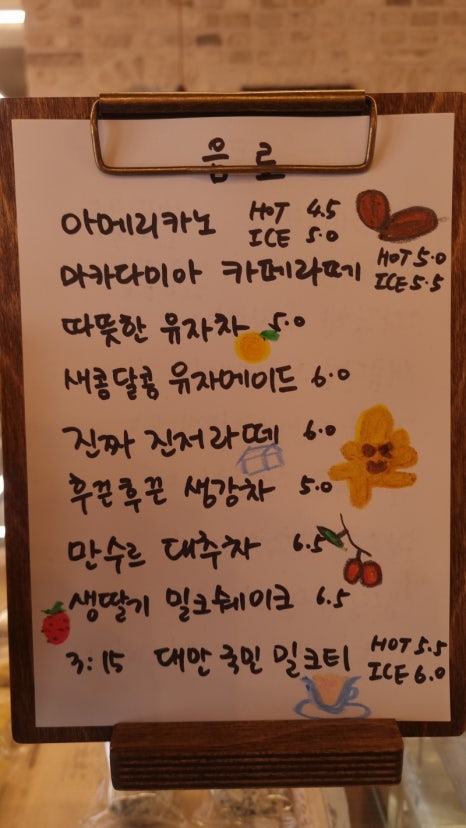 음료
아메리카노 HOT 4.5
ICE 5.0
마카다미아 카페라떼 HOT 5.0
ICE 5.5
따뜻한 유자차 5.0
새콩달콩 유자에이드 6.0
진짜 진저라떼 6.0
후끈후끈 생강차 5.0
만수르 대추차 6.5
생딸기 밀크쉐이크 6.5
3:15 대만 국민 밀크티 HOT 5.5
ICE 6.0